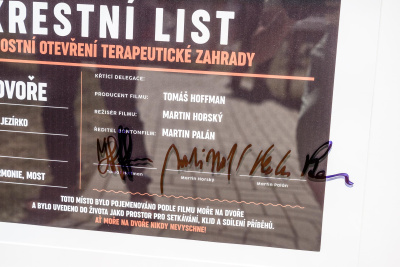 KŘESTNÍ LIST
OSTNÍ OTEVŘENÍ TERAPEUTICKÉ ZAHRADY
DVOŘE
JEZÍRKO
RMONIE, MOST
KŘTÍCÍ DELEGACE:
PRODUCENT FILMU: TOMÁŠ HOFFMAN
REŽISÉR FILMU: MARTIN HORSKÝ
ŘEDITEL BONTONFILM: MARTIN PALÁN
Martin Horský
Martin Palán
TOTO MÍSTO BYLO POJMENOVÁNO PODLE FILMU MOŘE NA DVOŘE
A BYLO UVEDENO DO ŽIVOTA JAKO PROSTOR PRO SETKÁVÁNÍ, KLID A SDÍLENÍ PŘÍBĚHŮ.
AŤ MOŘE NA DVOŘE NIKDY NEVYSCHNE!